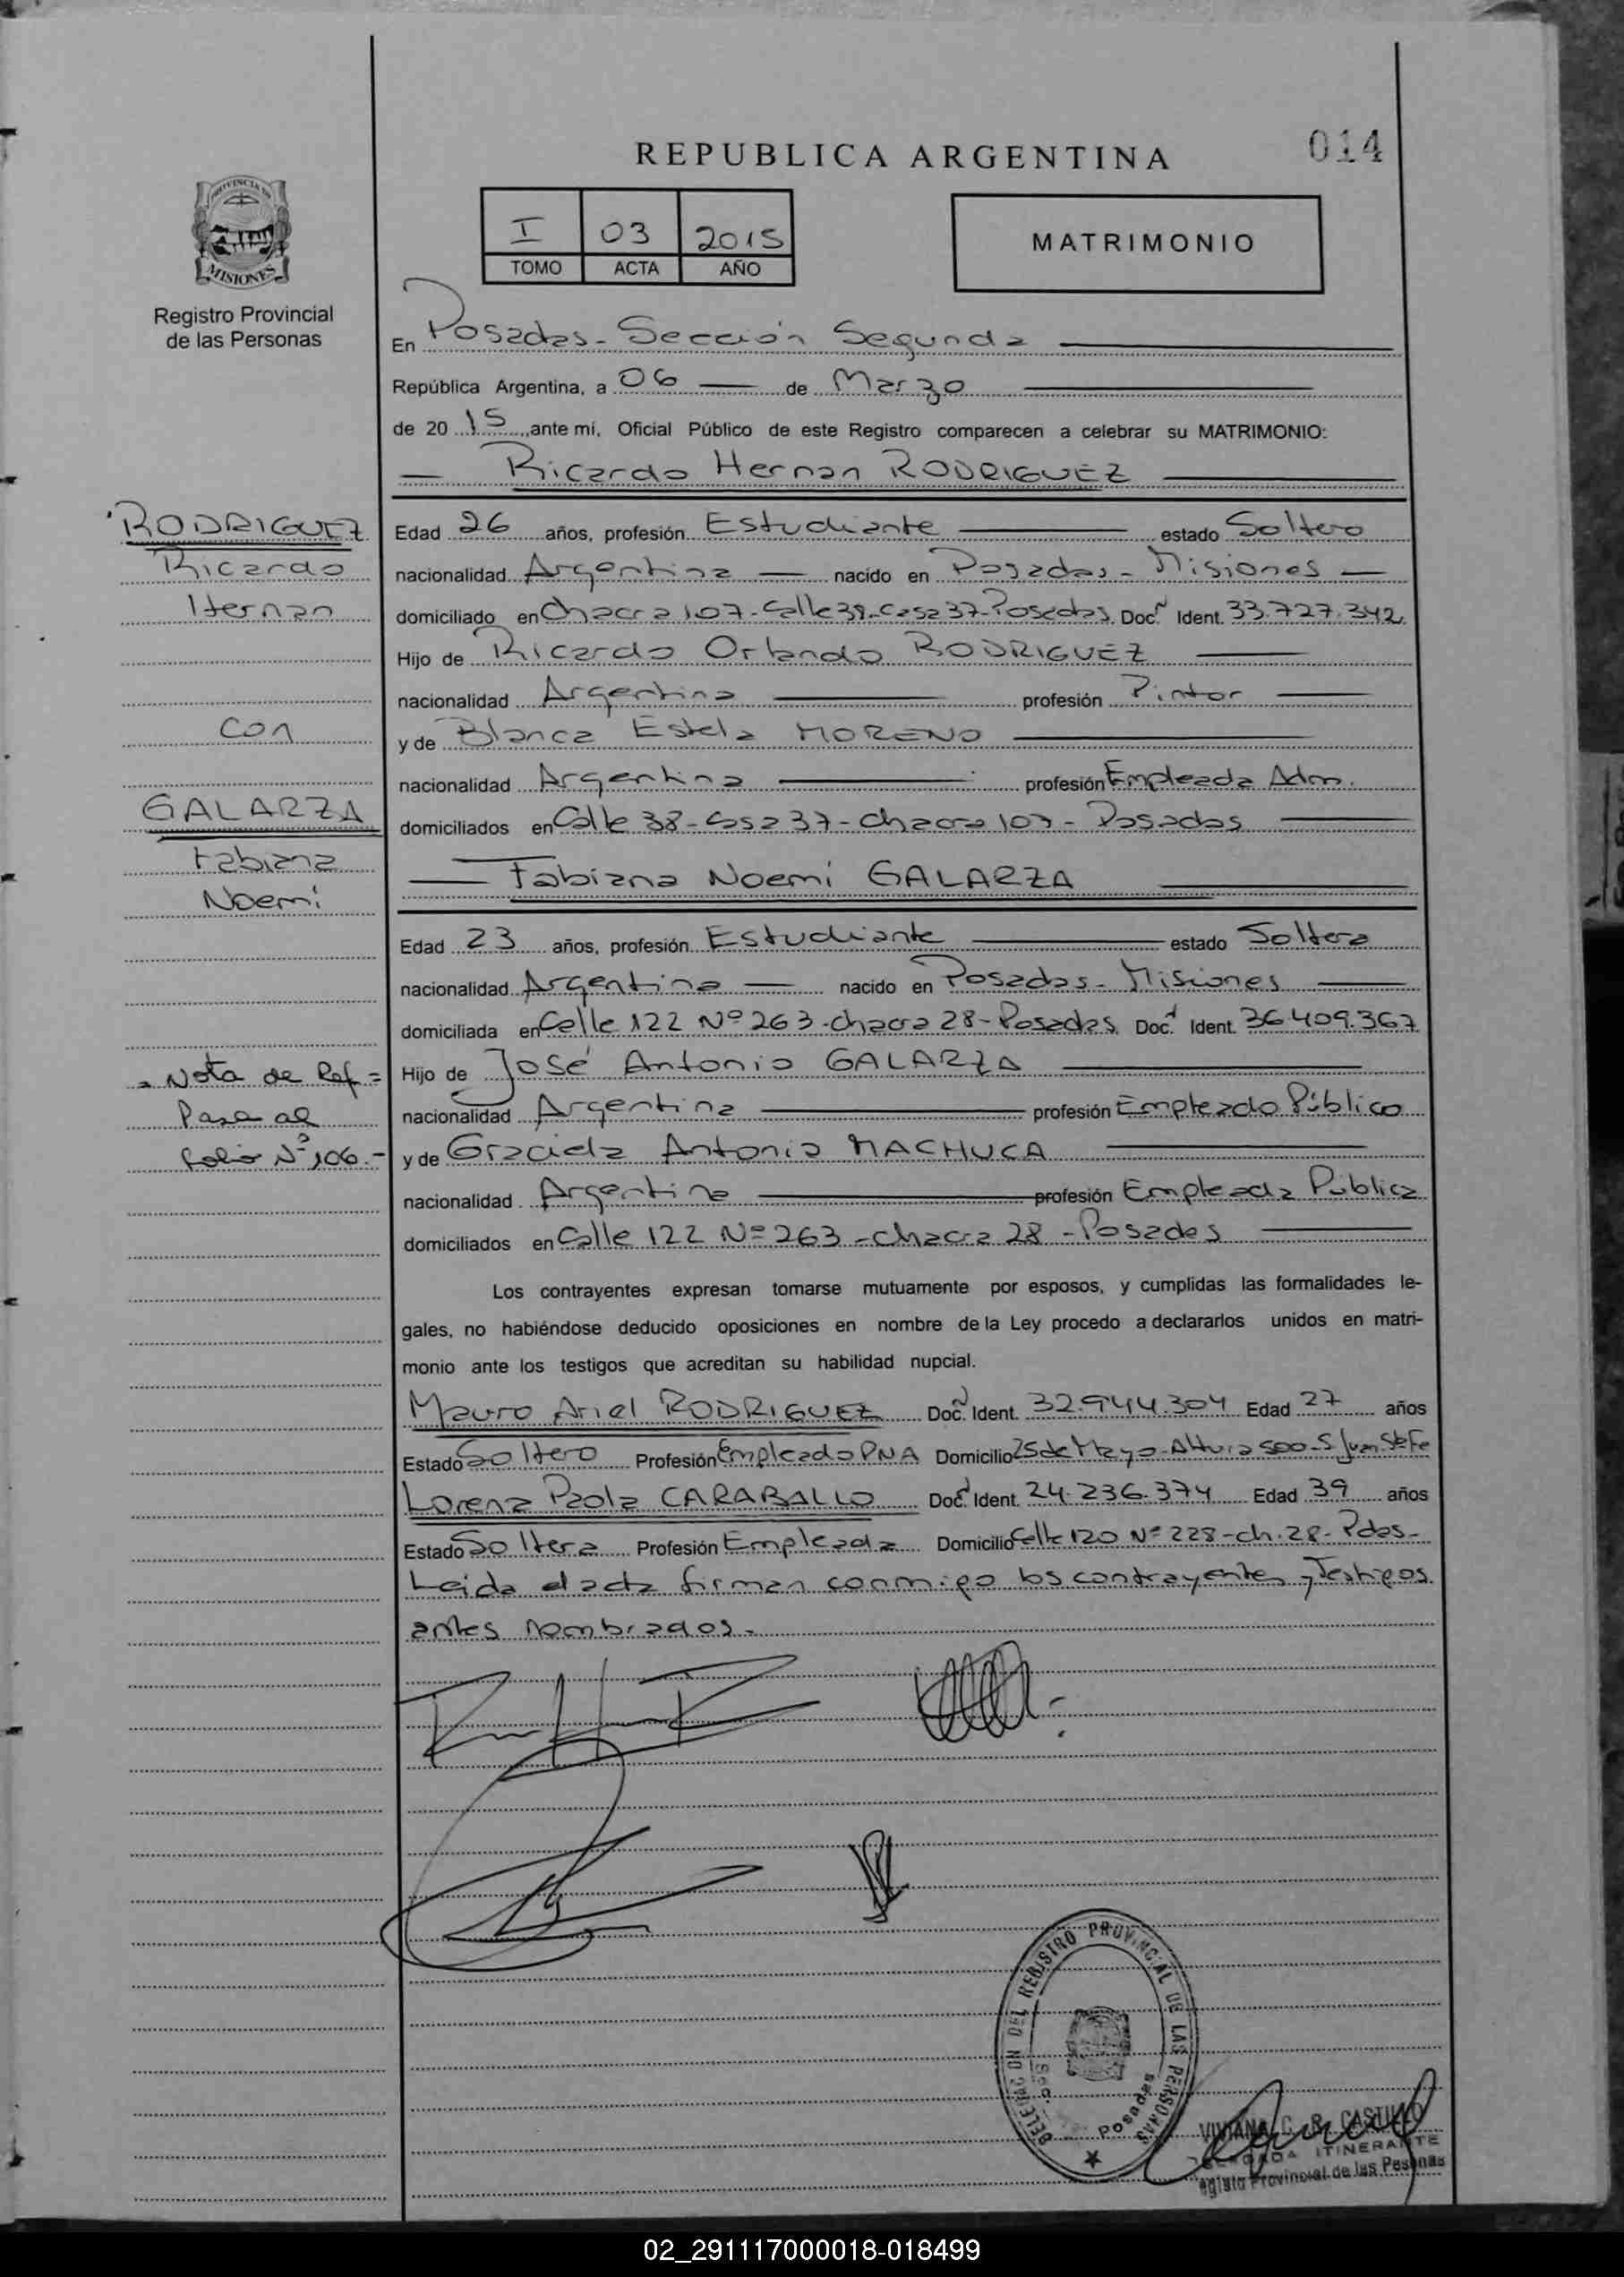 REPUBLICA ARGENTINA
014
I 03 2015
TOMO ACTA AÑO
MATRIMONIO
PROVINCIA DE
MISIONES
Registro Provincial
de las Personas
En Posadas - Sección Segunda
República Argentina, a 06 de Marzo
de 20 15 ,ante mí, Oficial Público de este Registro comparecen a celebrar su MATRIMONIO:
Ricardo Hernan RODRIGUEZ
RODRIGUEZ
Ricardo
Hernan
con
GALARZA
Fabiana
Noemi
= Nota de Ref =
Pasa al
folio Nº 106.-
Edad 26 años, profesión Estudiante estado Soltero
nacionalidad Argentina nacido en Posadas - Misiones
domiciliado en Chacra 107 - Calle 38 - casa 37 - Posadas. Doc. Ident. 33.727.342
Hijo de Ricardo Orlando RODRIGUEZ
nacionalidad Argentina profesión Pintor
y de Blanca Estela MORENO
nacionalidad Argentina profesión Empleada Adm.
domiciliados en Calle 38 - casa 37 - chacra 107 - Posadas
Fabiana Noemi GALARZA
Edad 23 años, profesión Estudiante estado Soltera
nacionalidad Argentina nacido en Posadas - Misiones
domiciliada en Calle 122 Nº 263 - chacra 28 - Posadas Doc. Ident. 36.409.367
Hijo de José Antonio GALARZA
nacionalidad Argentina profesión Empleado Público
y de Graciela Antonia MACHUCA
nacionalidad Argentina profesión Empleada Pública
domiciliados en Calle 122 Nº 263 - chacra 28 - Posadas
Los contrayentes expresan tomarse mutuamente por esposos, y cumplidas las formalidades le-
gales, no habiéndose deducido oposiciones en nombre de la Ley procedo a declararlos unidos en matri-
monio ante los testigos que acreditan su habilidad nupcial.
Mauro Ariel RODRIGUEZ Doc. Ident. 32.944.304 Edad 27 años
Estado Soltero Profesión Empleado PNA Domicilio 25 de Mayo - Altura 500 - S Juan Sta Fe
Lorena Paola CARABALLO Doc. Ident. 24.236.374 Edad 39 años
Estado Soltera Profesión Empleada Domicilio Calle 120 Nº 228 - ch. 28 - Pdas -
Leida el acta firman conmigo los contrayentes y Testigos
antes nombrados.-
DELEGACION DEL REGISTRO PROVINCIAL DE LAS PERSONAS
Posadas
VIVIANA C. R. CASTILLO
ITINERANTE
Provincial de las Pesonas
02_291117000018-018499